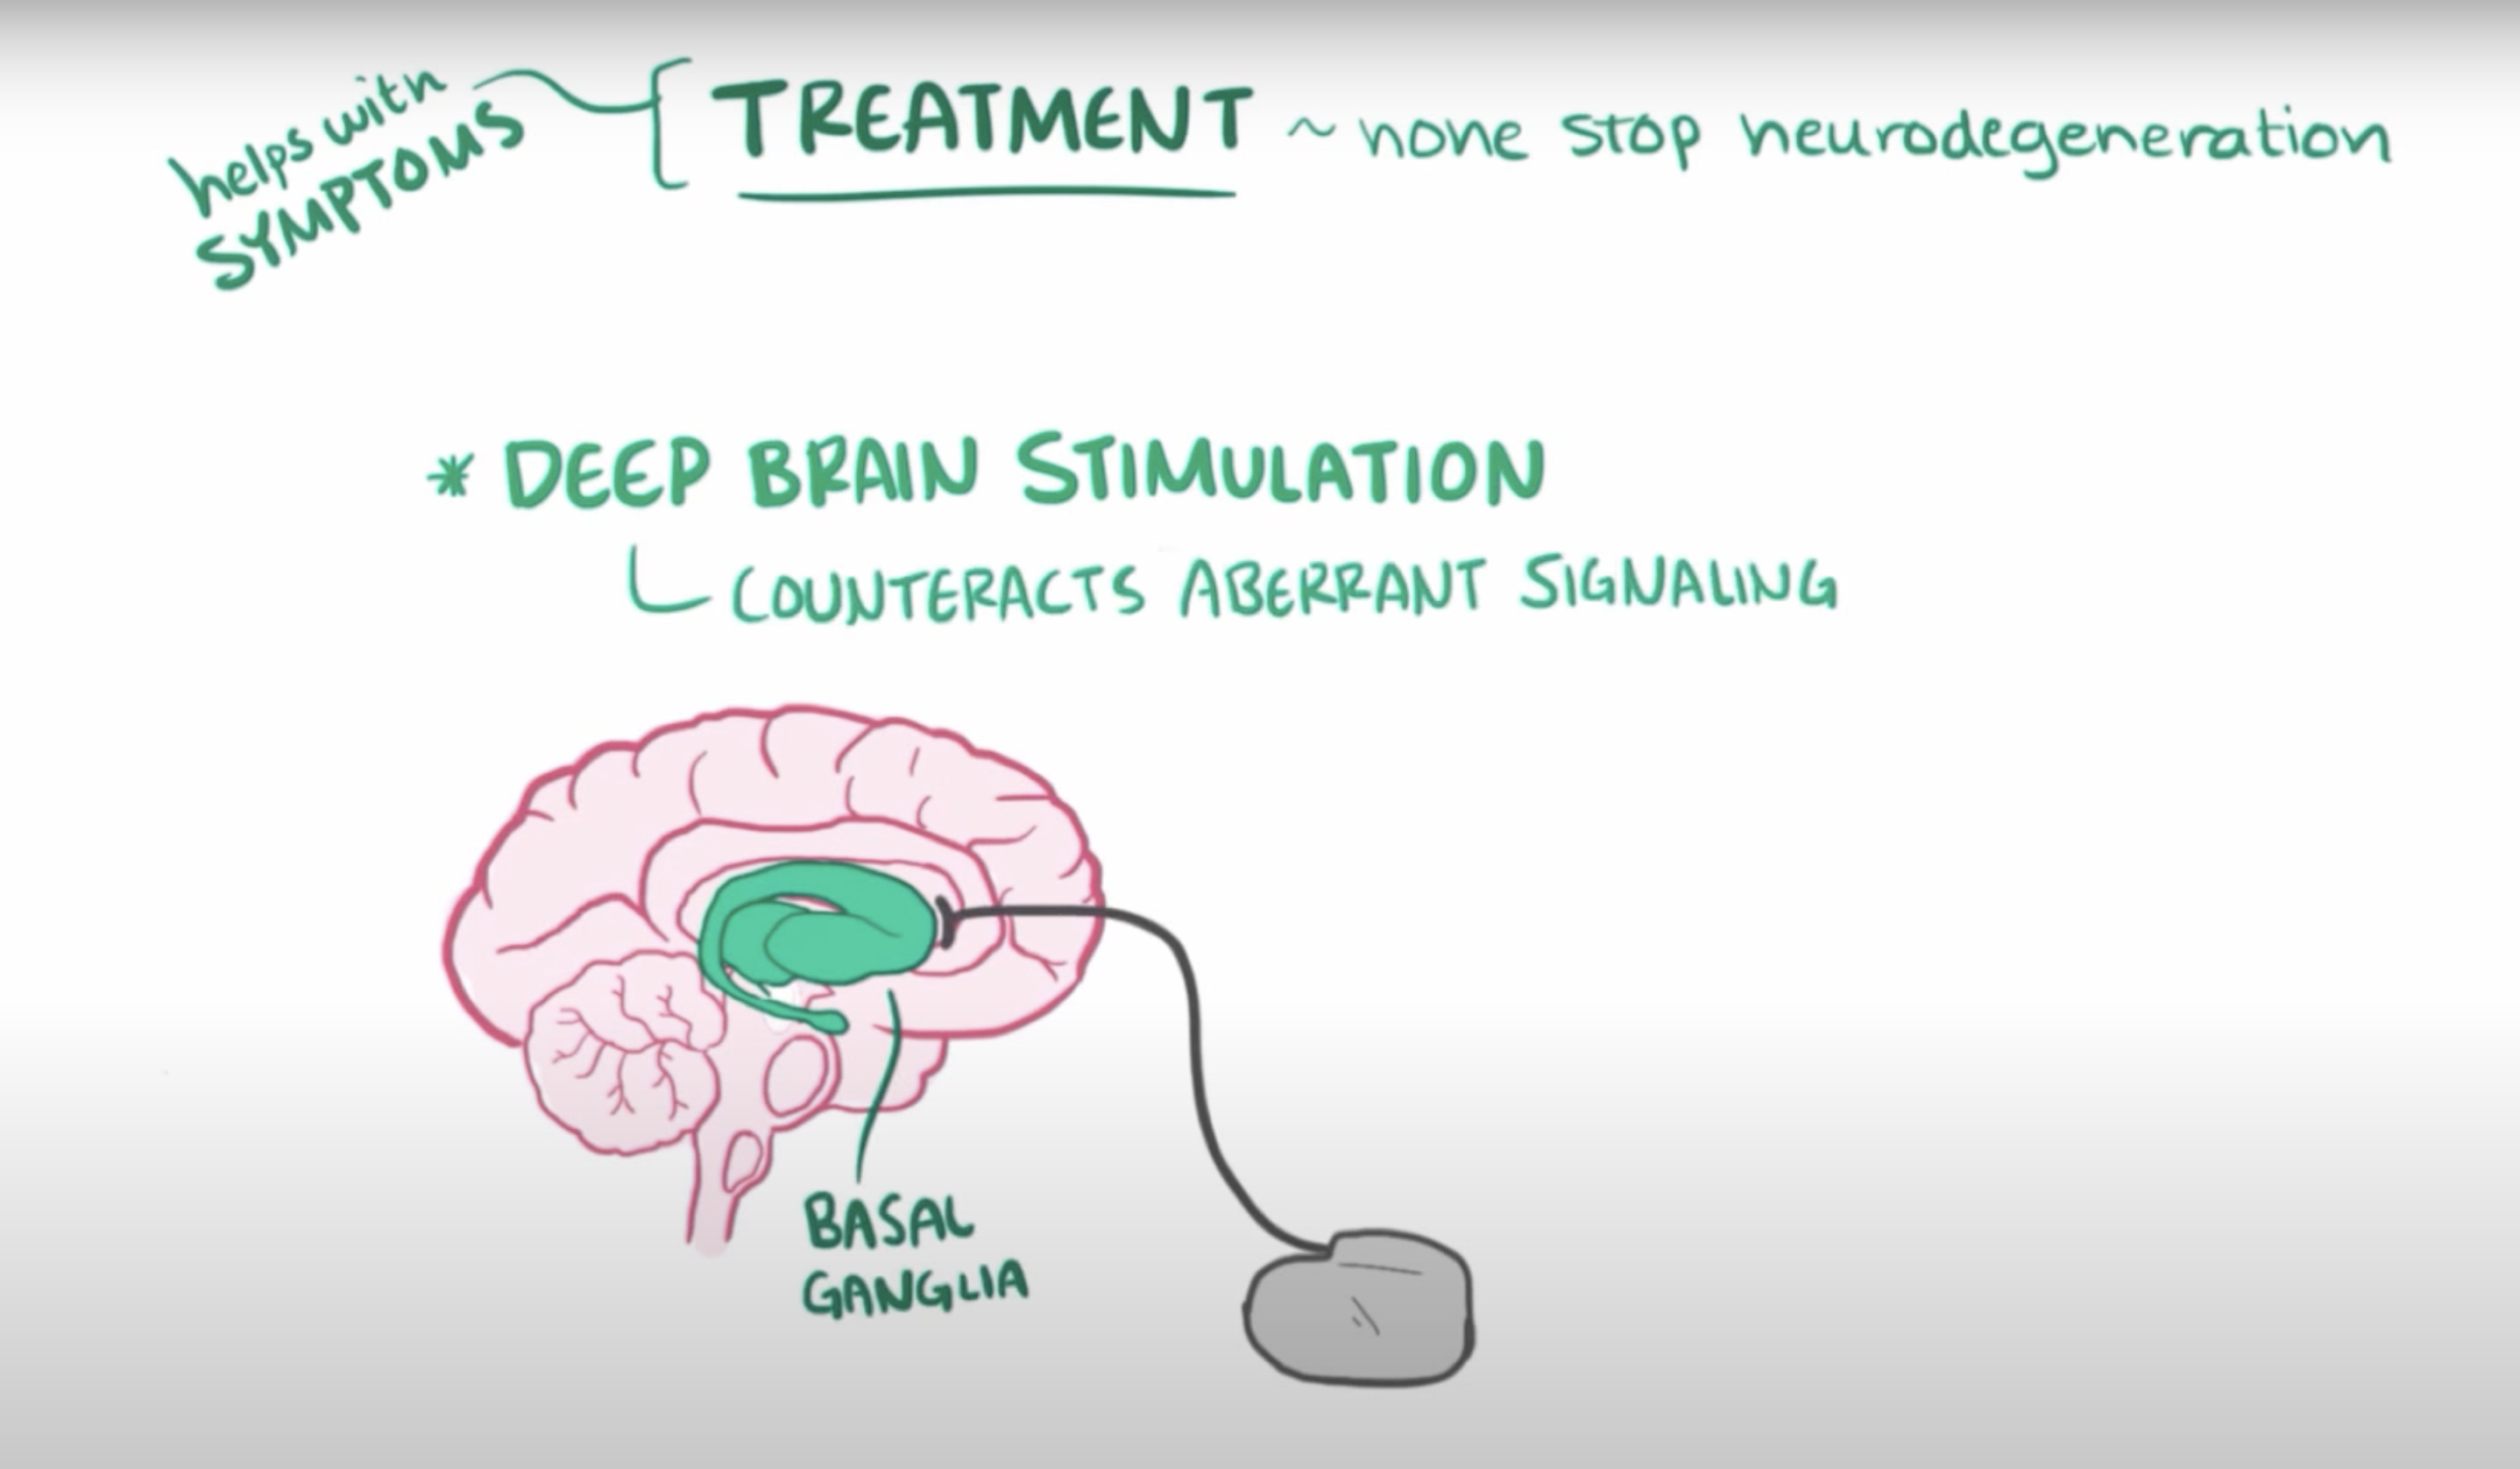 helps with
SYMPTOMS
TREATMENT ~ none stop neurodegeneration
* DEEP BRAIN STIMULATION
COUNTERACTS ABERRANT SIGNALING
BASAL
GANGLIA